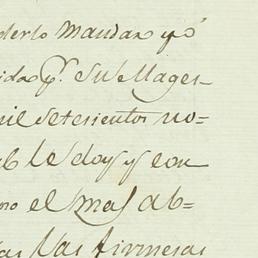 derlo Mandar yo
ida pr. Su Mages-
mil setesientos no-
le doy y con
mo el mas ab-
las las firmesas